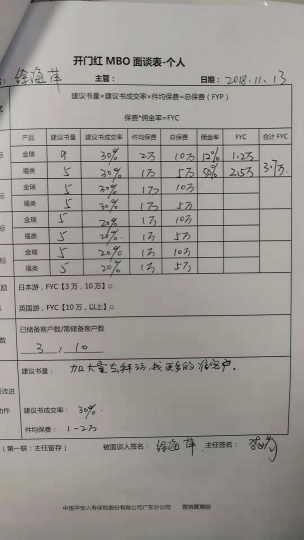 开门红 MBO 面谈表-个人
徐海萍 主管： 日期：2018.11.13
建议书量×建议书成交率×件均保费=总保费（FYP）
保费*佣金率=FYC
产品 建议书量 建议书成交率 件均保费 总保费 佣金率 FYC 合计 FYC
金瑞 9 30% 2万 10万 12% 1.2万 3.7万
福类 5 20% 1万 5万 2.5万
金瑞 5 30% 1万 10万
福类 5 30% 1万 5万
金瑞 5 20% 1万 10万
福类 5 20% 1万 5万
金瑞 5 20% 1万 10万
福类 5 20% 1万 5万
日本游，FYC【3 万，10 万】□
英国游，FYC【10 万，以上】□
已储备客户数/需储备客户数
3，10
建议书量： 加大量去拜访，找更多的准客户
建议书成交率： 30%
件均保费： 1-2万
（第一联：主任留存） 被面谈人签名： 徐海萍 主任签名：
中国平安人寿保险股份有限公司广东分公司 营销管理部